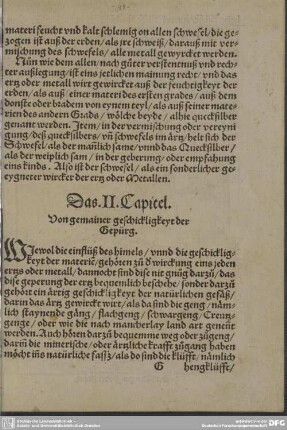 materi feucht vnd kalt schlemig on allen schwefel / die ge-
zogen ist auß der erden / als jre schweiß / darauß mit ver-
mischung des schwefels / alle metall gewyrcket werden.
Nün wie dem allen / nach güter verstentnuß vnd rech-
ter außlegung / ist eins jetlichen mainung recht / vnd das
ertz oder metall wirt gewircket auß der feuchtigkeyt der
erden / als auß einer materi des ersten grades / auß dem
donst oder bradem von eynem teyl / als auß seiner mate-
rien des andern Grads / wölche beyde / alhie quecksilber
genant werden. Item / in der vermischung oder vereyni
gung / deß quecksilbers / vñ schwefels im ärtz / helt sich der
Schwefel / als der mañlich same / vnnd das Quecksilber /
als der weiplich sam / in der geberung / oder empfahung
eins kinds. Also ist der Schwefel / als ein sonderlicher ge-
eygneter wircker der ertz oder Metallen.
Das. II. Capitel.
Von gemainer geschickligkeyt der
Gepürg.
WJewol die einflüß des himels / vnnd die geschicklig-
keyt der materie / gehören zü d wirckung eins jeden
ertzs oder metall / dannocht sind dise nit gnüg darzü / das
dise geperung der ertz bequemlich beschehe / sonder darzü
gehört ein ärtig geschickligkeyt der natürlichen gefäß /
darin das ärtz gewirckt wirt / als da sind die geng / näm-
lich staynende gäng / flachgeng / schwargeng / Creutz-
genge / oder wie die nach mancherlay land art genent
werden. Auch hören darzü bequemme weg oder zügeng /
darin die minerische / oder ärtzliche krafft zügang haben
möcht in̄s natürliche fassz / als do sind die klüfft / nämlich
G
hengklüffte /